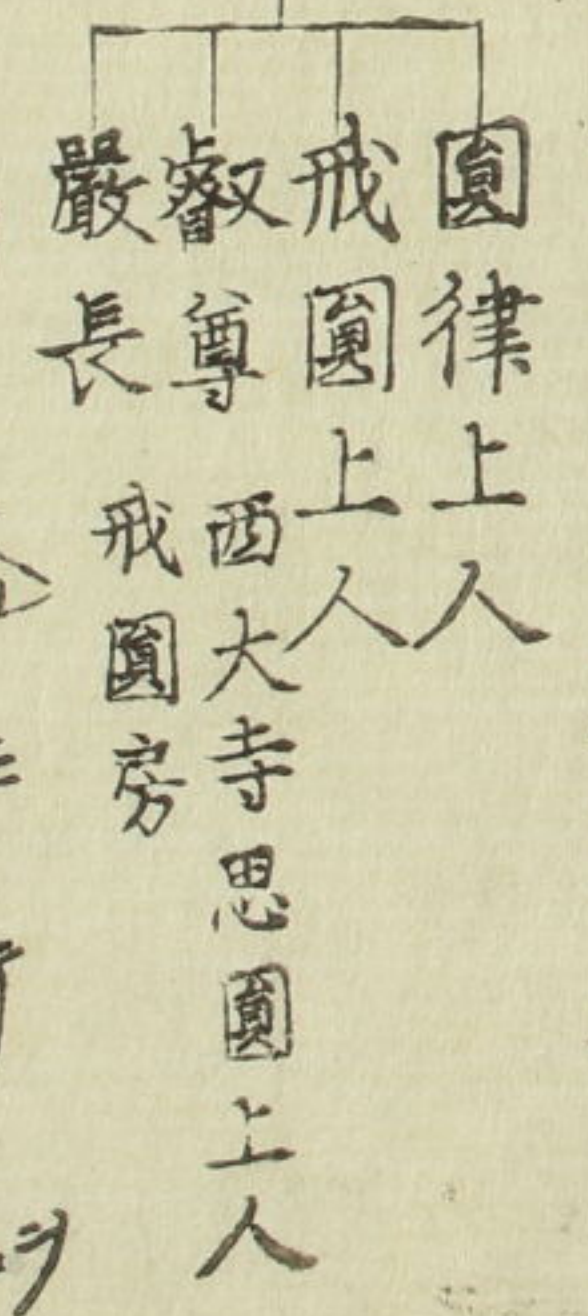 圓律上人
戒圓上人
叡尊 西大寺思圓上人
嚴長 戒圓房